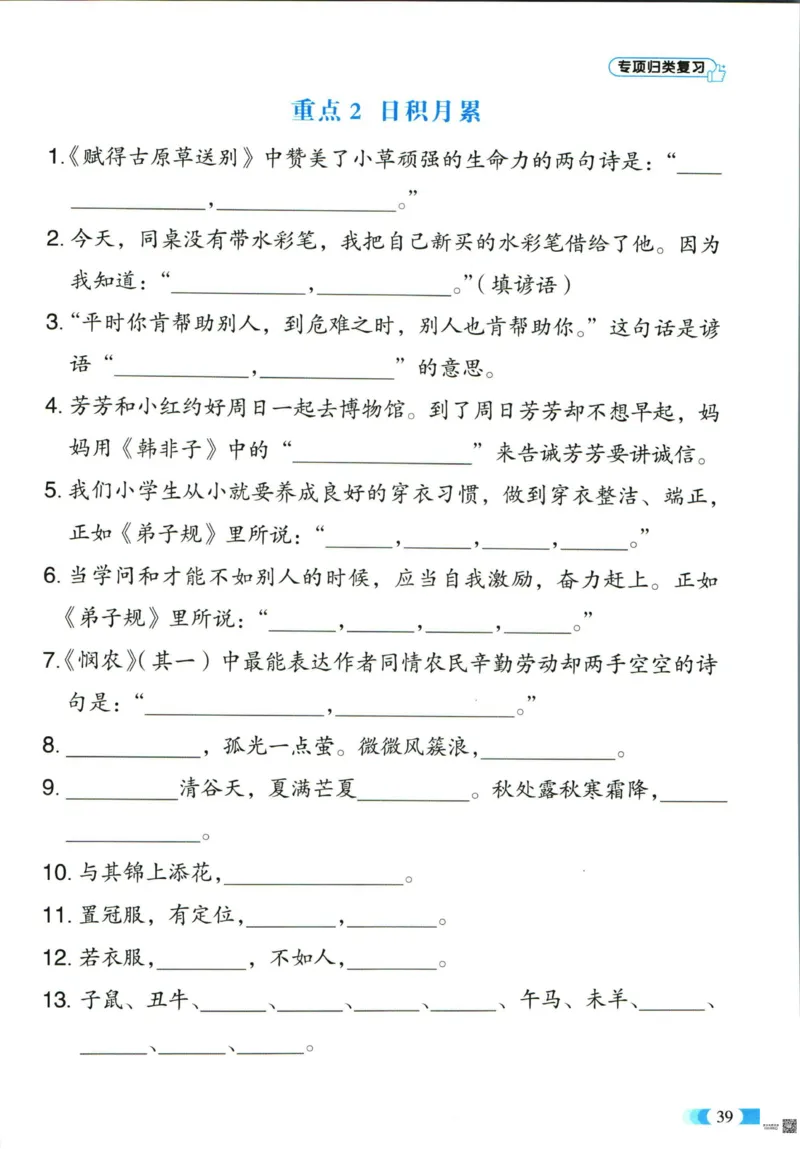 专项归类复习
重点2 日积月累
1.《赋得古原草送别》中赞美了小草顽强的生命力的两句诗是：“____
____________,________________。”
2. 今天，同桌没有带水彩笔，我把自己新买的水彩笔借给了他。因为
我知道：“____________,____________。”（填谚语）
3. “平时你肯帮助别人，到危难之时，别人也肯帮助你。”这句话是谚
语“____________,____________”的意思。
4. 芳芳和小红约好周日一起去博物馆。到了周日芳芳却不想早起，妈
妈用《韩非子》中的“________________”来告诫芳芳要讲诚信。
5. 我们小学生从小就要养成良好的穿衣习惯，做到穿衣整洁、端正，
正如《弟子规》里所说：“______,______,______,______。”
6. 当学问和才能不如别人的时候，应当自我激励，奋力赶上。正如
《弟子规》里所说：“______,______,______,______。”
7.《悯农》（其一）中最能表达作者同情农民辛勤劳动却两手空空的诗
句是：“________________,________________。”
8. ____________，孤光一点萤。微微风簇浪,____________。
9. __________清谷天，夏满芒夏__________。秋处露秋寒霜降,______
____________。
10. 与其锦上添花,________________。
11. 置冠服，有定位,________,________。
12. 若衣服,________，不如人,________。
13. 子鼠、丑牛、______、______、______、______、午马、未羊、______、
______、______、______。
39